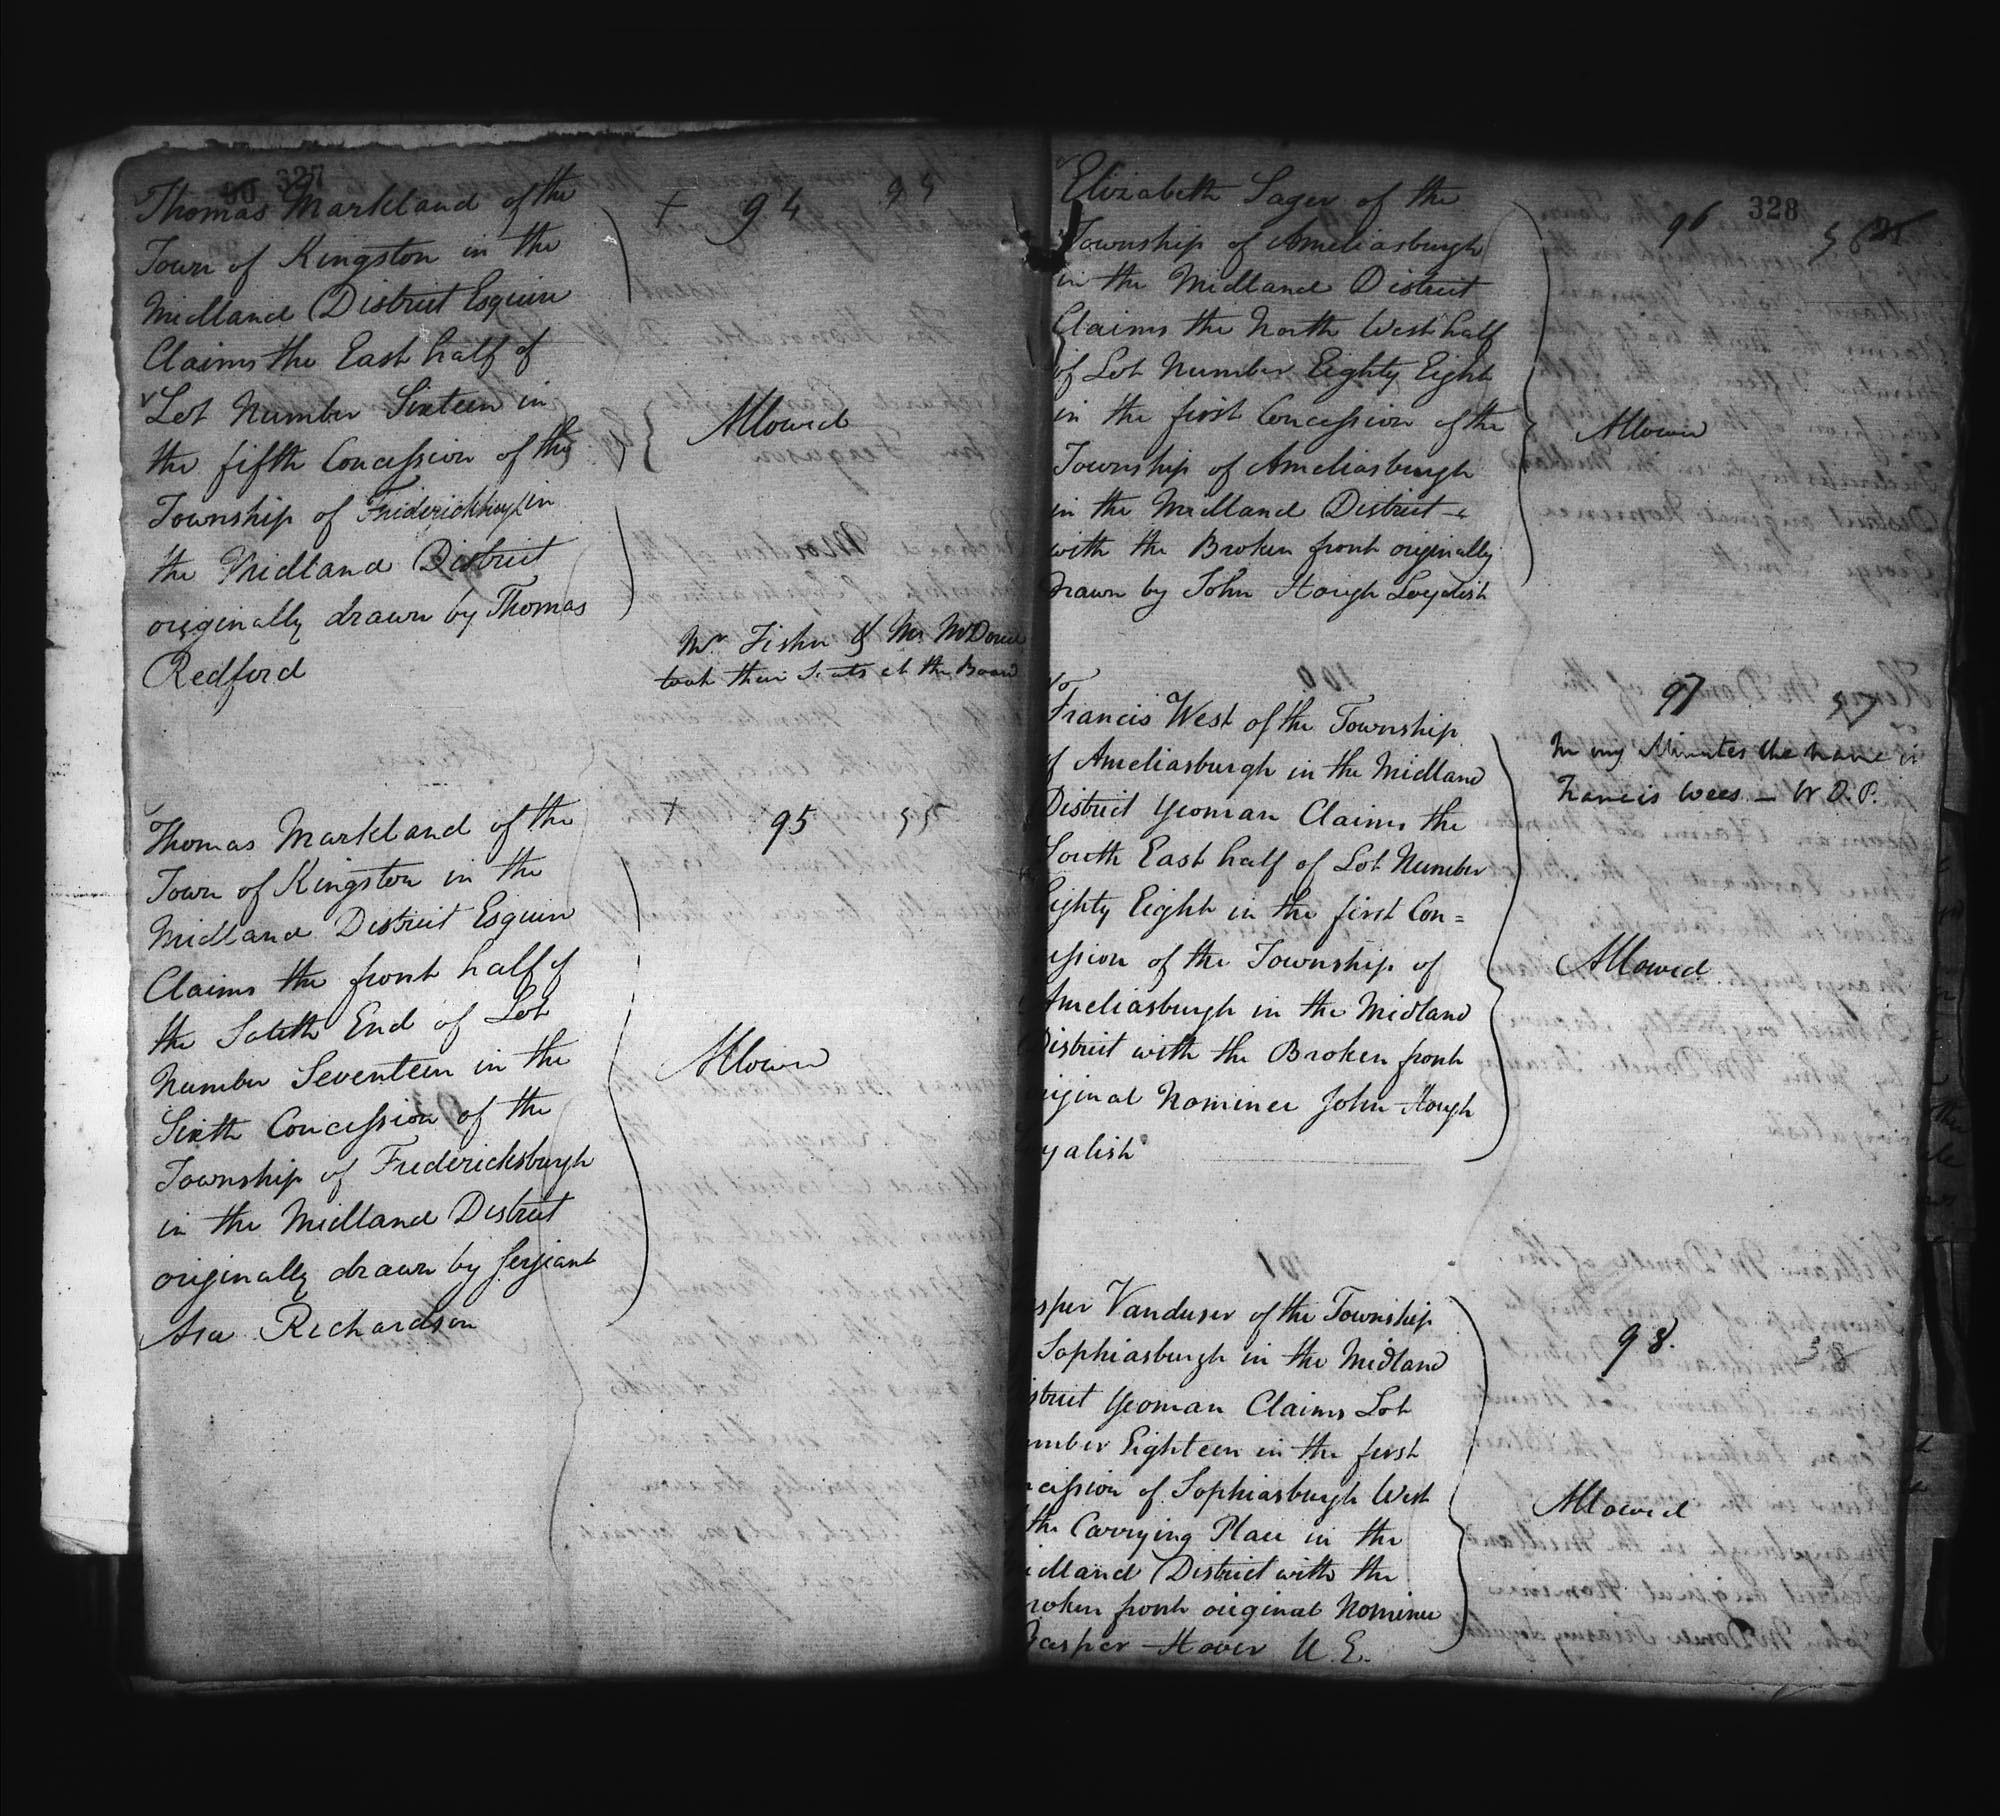 327
Thomas Markland of the
Town of Kingston in the
Midland District Esquire
Claims the East half of
Lot Number Sixteen in
the fifth Concession of the
Township of Friderickburg in
the Midland District
originally drawn by Thomas
Redford
+ 94
Allowed
Mr Fisher & Mr McDonell
took their Seats at the Board
Thomas Markland of the
Town of Kingston in the
Midland District Esquire
Claims the front half of
the South End of Lot
Number Seventeen in the
Sixth Concession of the
Township of Fredericksburgh
in the Midland District
originally drawn by Serjeant
Asa Richardson
+ 95
Allowed
328
Elizabeth Sager of the
Township of Ameliasburgh
in the Midland District
Claims the North West half
of Lot Number Eighty Eight
in the first Concession of the
Township of Ameliasburgh
in the Midland District
with the Broken front originally
Drawn by John Hough Loyalist
96
Allowed
Francis West of the Township
of Ameliasburgh in the Midland
District Yeoman Claims the
South East half of Lot Number
Eighty Eight in the first Con=
ission of the Township of
Ameliasburgh in the Midland
District with the Broken front
riginal Nominee John Hough
yalist
97
In my Minutes the name is
Francis Wees — W D. P.
Allowed
sper Vanduser of the Township
Sophiasburgh in the Midland
strict Yeoman Claims Lot
umber Eighteen in the first
ncission of Sophiasburgh West
the Carrying Place in the
idland District with the
roken front original Nominee
Casper Hover U. E.
98.
Allowed